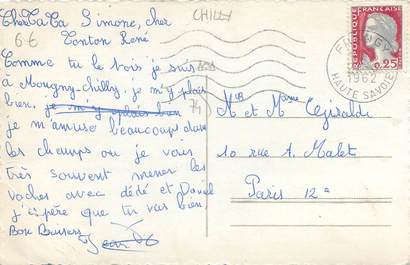 CHILLY
Chère TaTa Simone, cher
Tonton René
6€
Comme tu le vois je suis
à Mougny-Chilly. je m'y plais
bien. je m'y plais bien
je m'amuse beaucoup dans
les champs ou je vous
très souvent mener les
vaches avec dédé et David
j'espère que tu vas bien.
Bon Baisers
Jean
74
REPUBLIQUE FRANÇAISE
0,25
FRANGY
1962
HAUTE SAVOIE
Mr et Mme
10 rue A. Malet
Paris 12e